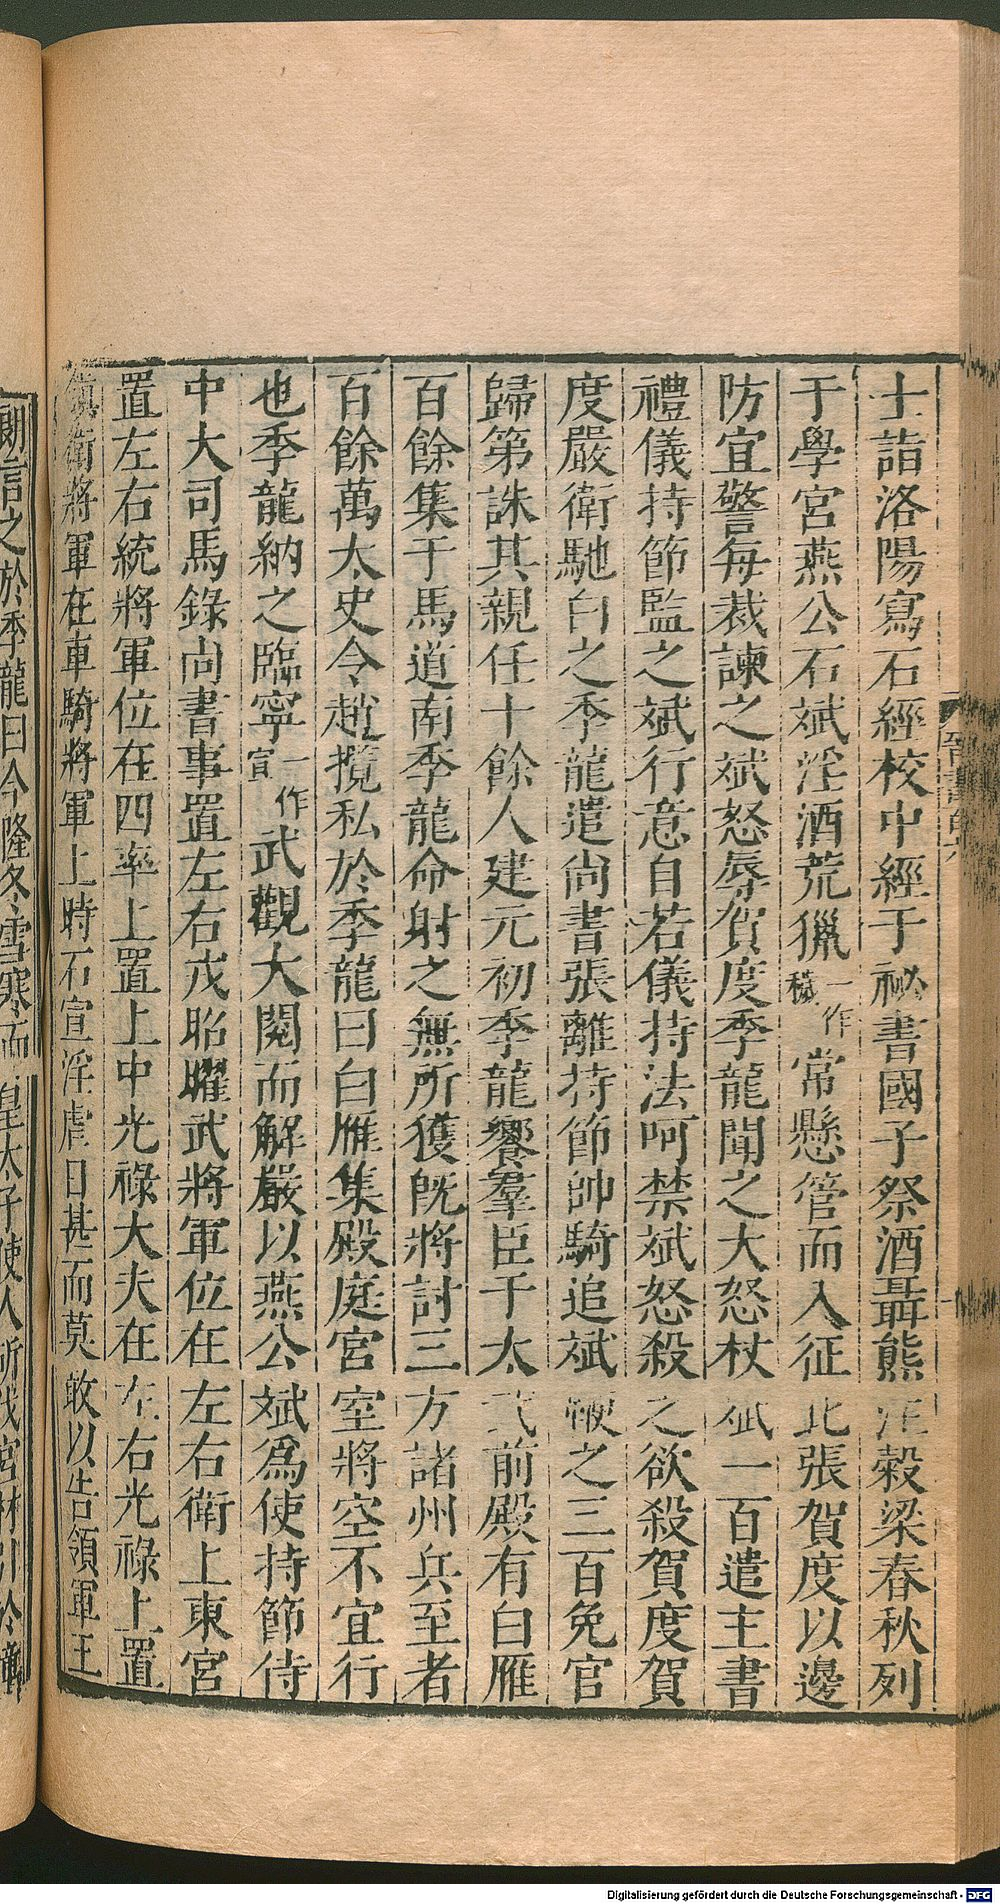 士詣洛陽寫石經校中經于祕書國子祭酒聶熊注穀梁春秋列
于學宮燕公石斌淫酒荒獵一作穢常懸管而入征北張賀度以邊
防宜警每裁諫之斌怒辱賀度季龍聞之大怒杖斌一百遣主書
禮儀持節監之斌行意自若儀持法呵禁斌怒殺之欲殺賀度賀
度嚴衛馳白之季龍遣尚書張離持節帥騎追斌鞭之三百免官
歸第誅其親任十餘人建元初季龍饗羣臣于太武前殿有白雁
百餘集于馬道南季龍命射之無所獲旣將討三方諸州兵至者
百餘萬太史令趙攬私於季龍曰白雁集殿庭宮室將空不宜行
也季龍納之臨寧一作宣武觀大閱而解嚴以燕公斌爲使持節侍
中大司馬錄尚書事置左右戎昭曜武將軍位在左右衛上東宮
置左右統將軍位在四率上置上中光祿大夫在左右光祿上置
鎮衛將軍在車騎將軍上時石宣淫虐日甚而莫敢以告領軍王
朗言之於季龍曰今隆冬雪寒而皇太子使人斫伐宮材引於漳
Digitalisierung gefördert durch die Deutsche Forschungsgemeinschaft - DFG